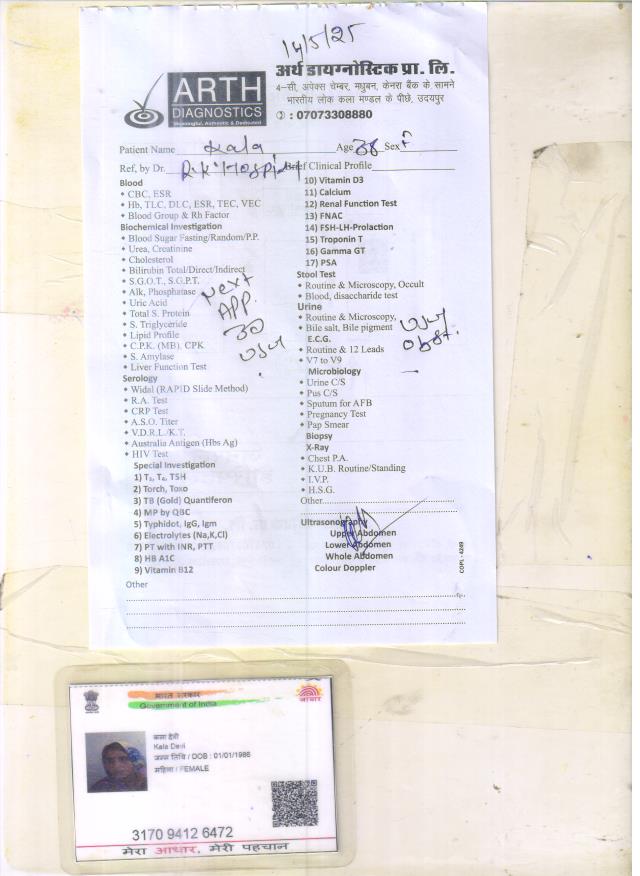 14/5/25
ARTH
DIAGNOSTICS
Meaningful, Authentic & Dedicated
अर्थ डायग्नोस्टिक प्रा. लि.
4-सी, अपेक्स चेम्बर, मधुबन, केनरा बैंक के सामने
भारतीय लोक कला मण्डल के पीछे, उदयपुर
: 07073308880
Patient Name Kala Age 38 Sex F
Ref, by Dr. R.K. Hospital Brief Clinical Profile
Blood
• CBC, ESR
• Hb, TLC, DLC, ESR, TEC, VEC
• Blood Group & Rh Factor
Biochemical Investigation
• Blood Sugar Fasting/Random/P.P.
• Urea, Creatinine
• Cholesterol
• Bilirubin Total/Direct/Indirect
• S.G.O.T., S.G.P.T.
• Alk, Phosphatase
• Uric Acid
• Total S. Protein
• S. Triglyceride
• Lipid Profile
• C.P.K. (MB), CPK
• S. Amylase
• Liver Function Test
Next
APP.
Serology
• Widal (RAPID Slide Method)
• R.A. Test
• CRP Test
• A.S.O. Titer
• V.D.R.L./K.T.
• Australia Antigen (Hbs Ag)
• HIV Test
Special Investigation
1) T3, T4, TSH
2) Torch, Toxo
3) TB (Gold) Quantiferon
4) MP by QBC
5) Typhidot, IgG, Igm
6) Electrolytes (Na,K,Cl)
7) PT with INR, PTT
8) HB A1C
9) Vitamin B12
10) Vitamin D3
11) Calcium
12) Renal Function Test
13) FNAC
14) FSH-LH-Prolaction
15) Troponin T
16) Gamma GT
17) PSA
Stool Test
• Routine & Microscopy, Occult
• Blood, disaccharide test
Urine
• Routine & Microscopy,
• Bile salt, Bile pigment
E.C.G.
• Routine & 12 Leads
• V7 to V9
Microbiology
• Urine C/S
• Pus C/S
• Sputum for AFB
• Pregnancy Test
• Pap Smear
Biopsy
X-Ray
• Chest P.A.
• K.U.B. Routine/Standing
• I.V.P.
• H.S.G.
Other
Ultrasonography
Upper Abdomen
Lower Abdomen
Whole Abdomen
Colour Doppler
COPL - 4249
Other
भारत सरकार
Government of India
आधार
कला देवी
Kala Devi
जन्म तिथि / DOB : 01/01/1986
महिला / FEMALE
3170 9412 6472
मेरा आधार, मेरी पहचान